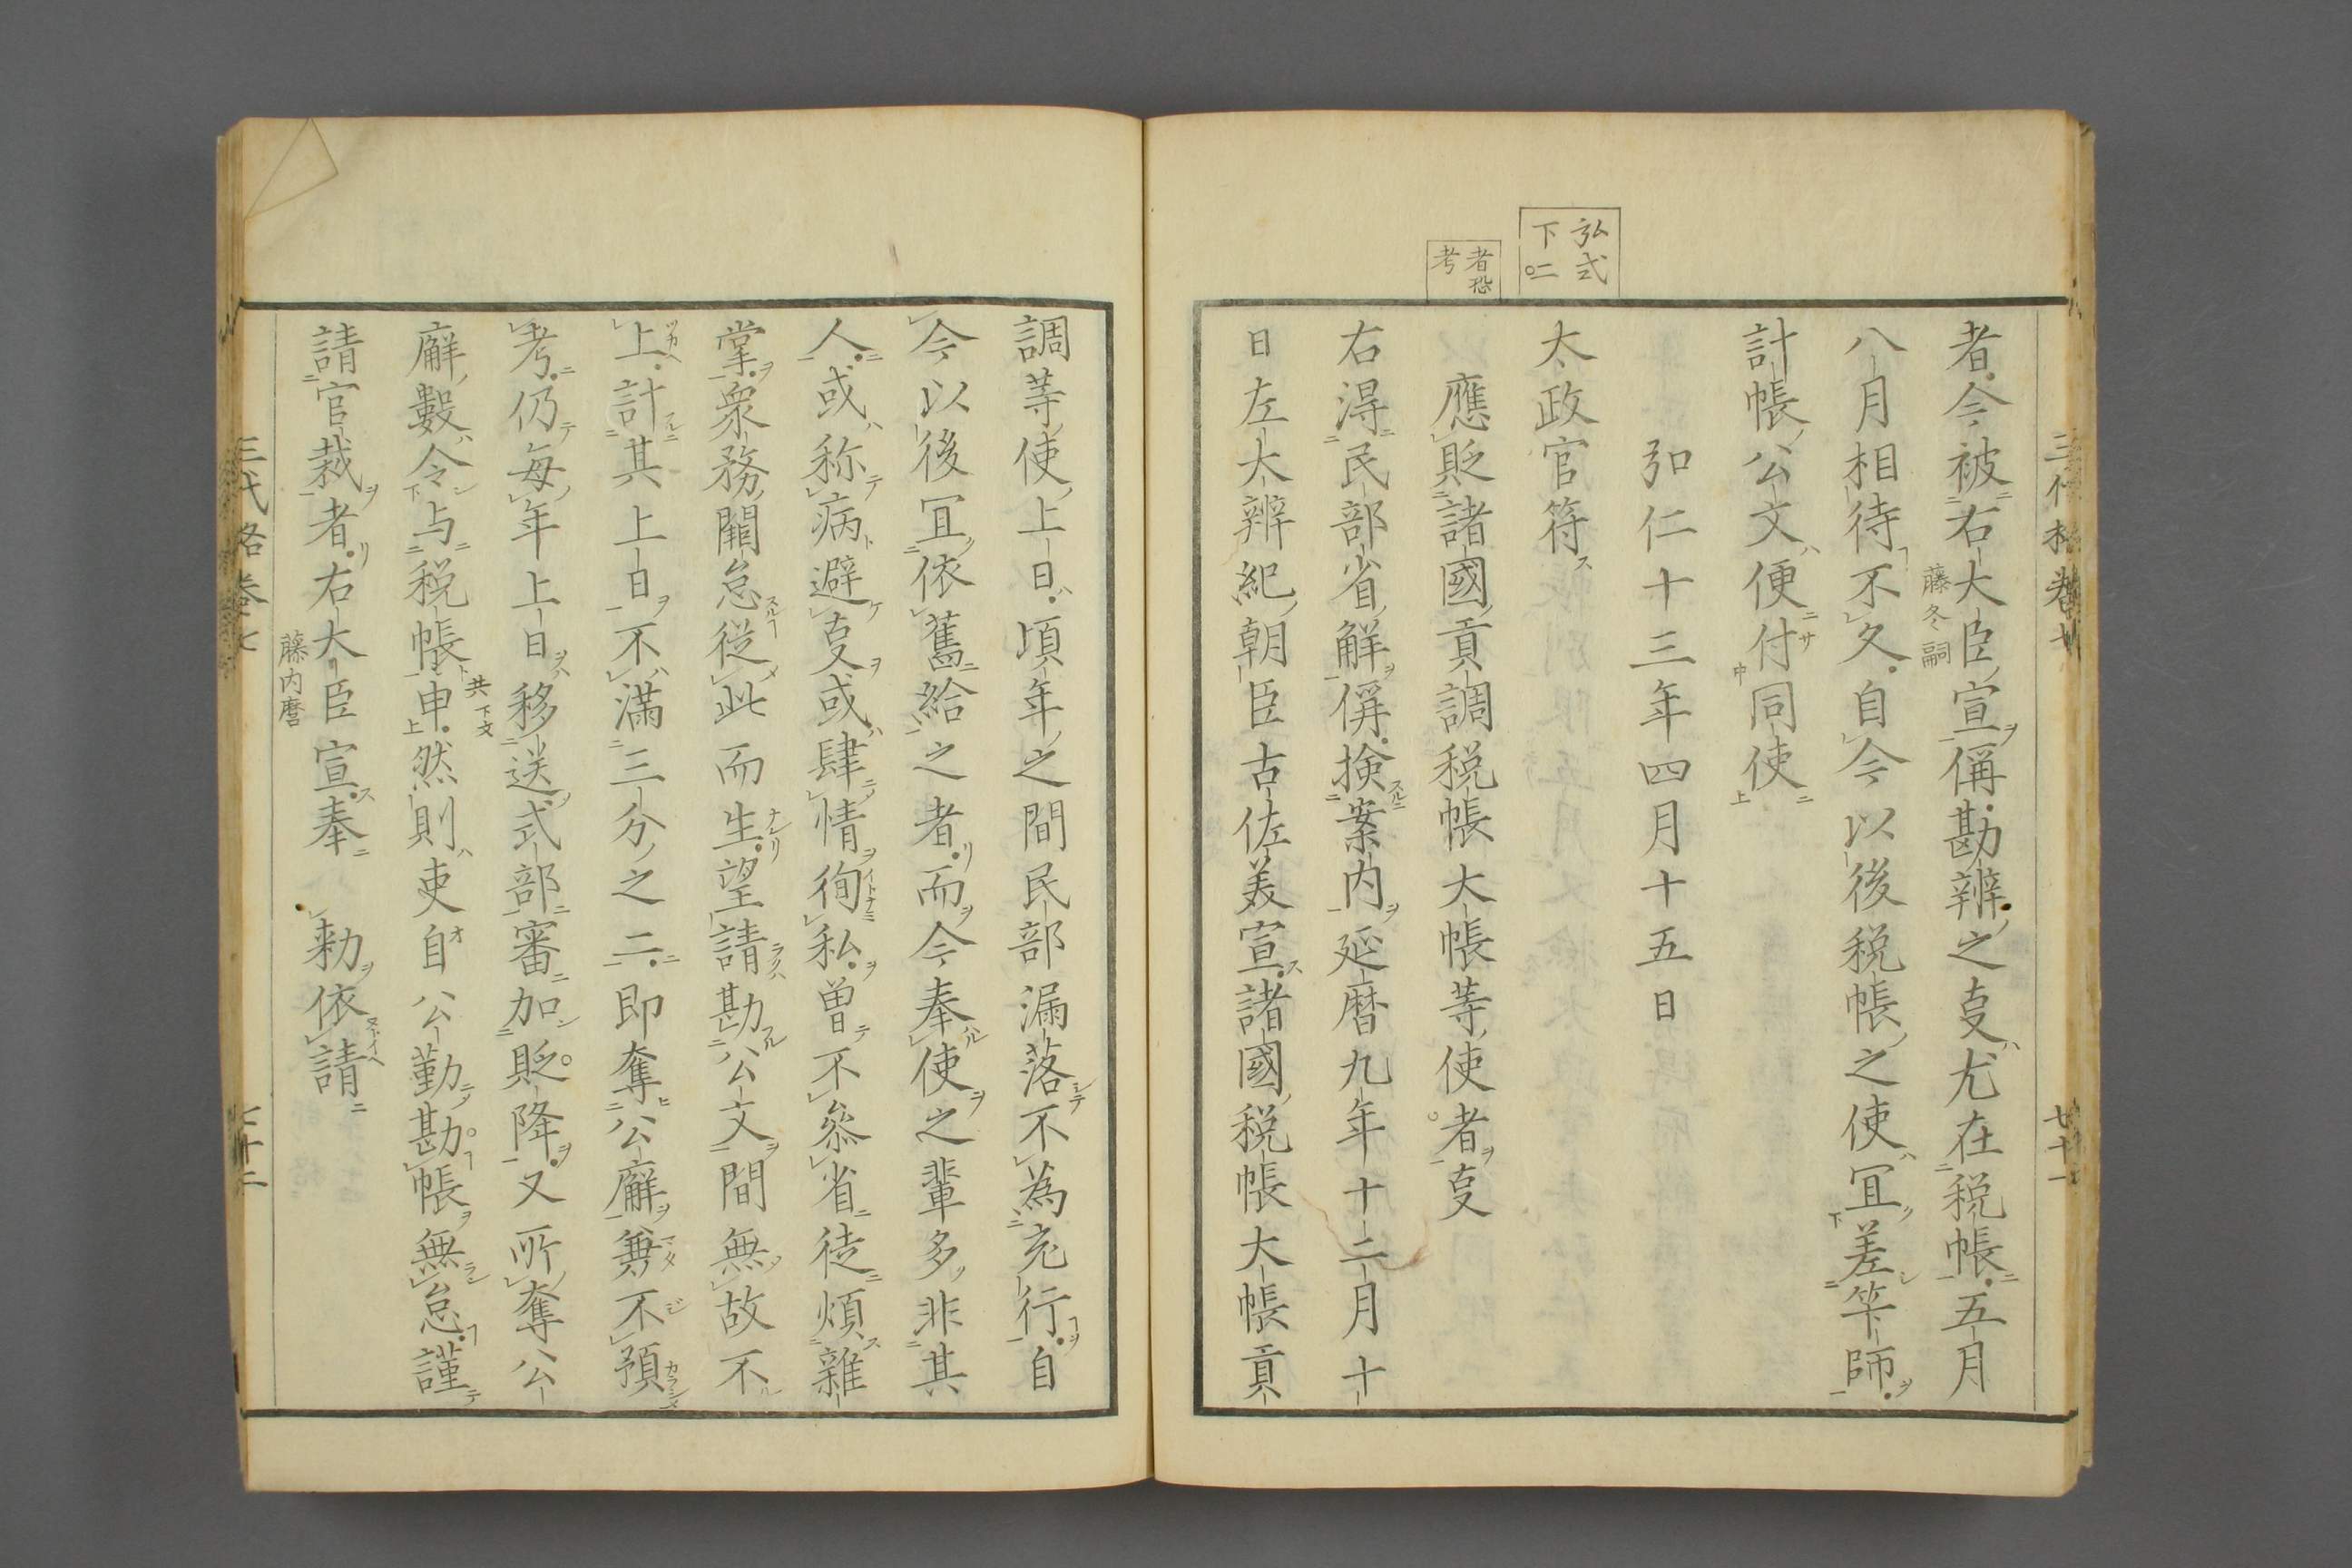 弘式
下二
者恐
考
者今被右大臣宣偁勘辨之㕝尤在税帳五月
藤冬嗣
八月相待不久自今以後税帳之使冝差筭師
計帳公文便付同使
弘仁十三年四月十五日
太政官符
應貶諸國貢調税帳大帳等使者㕝
右得民部省解偁撿案内延暦九年十二月十
日左大辨紀朝臣古佐美宣諸國税帳大帳貢
調等使上日頃年之間民部漏落不為充行自
今以後冝依舊給之者而今奉使之輩多非其
人或称病避㕝或肆情徇私曽不叅省徒煩雜
掌衆務闕怠從此而生望請勘公文間無故不
上計其上日不滿三分之二即奪公廨兼不預
考仍每年上日移送式部審加貶降又所奪公
廨數令与税帳共下文申然則吏自公勤勘帳無怠謹
請官裁者右大臣宣奉 勑依請
藤内麿
三代格卷七
七十二